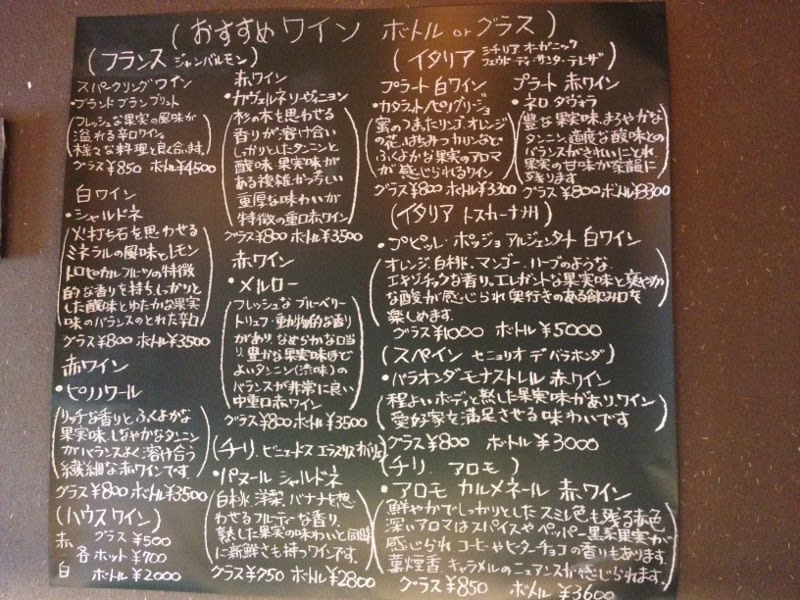 (おすすめワイン ボトルorグラス)
(フランス ジャンバルモン)
スパークリングワイン
・ブランドブランブリュット
フレッシュな果実の風味が
溢れる辛口ワイン。
様々な料理と良く合います。
グラス¥850 ボトル¥4500
白ワイン
・シャルドネ
火打ち石を思わせる
ミネラルの風味とレモン
トロピカルフルーツの特徴
的な香りを持ち、しっかりと
した酸味とゆたかな果実
味のバランスのとれた辛口
グラス¥800 ボトル¥3500
赤ワイン
・ピノノワール
リッチな香りとふくよかな
果実味、しなやかなタンニン
がバランスよく溶け合う
繊細な赤ワインです。
グラス¥800 ボトル¥3500
(ハウスワイン)
赤 グラス ¥500
各ホット ¥700
白 ボトル ¥2000
赤ワイン
・カヴェルネソーヴィニョン
杉の木を思わせる
香りが溶け合い
しっかりとしたタンニンと
酸味・果実味が
ある複雑かつ
重厚な味わいが
特徴の重口赤ワイン
グラス¥800 ボトル¥3500
赤ワイン
・メルロー
フレッシュなブルーベリー
トリュフ・動物的な香り
があり、なめらかな口当
り、豊かな果実味ほど
よいタンニン(渋味)の
バランスが非常に良い
中重口赤ワイン
グラス¥800 ボトル¥3500
(チリ、ビニェードス エラスリス
・パヌール シャルドネ
白桃、洋梨、バナナを想
わせるフルーティーな香り、
熟した果実の味わいと同時
に新鮮さも持つワインです。
グラス¥750 ボトル¥2800
(イタリア シチリア オーガニック
フェウド・ディ・サンタ・テレザ)
プラート 白ワイン
・カタラット/ピノグリージョ
蜜のつまったリンゴ、オレンジ
の花、はちみつカリンなど
ふくよかな果実のアロマ
が感じられるワイン
グラス¥800 ボトル¥3300
プラート 赤ワイン
・ネロ ダヴォラ
豊な果実味、まろやかな
タンニン、適度な酸味との
バランスがきれいにとれ
果実の甘味が余韻に
残ります
グラス¥800 ボトル¥3300
(イタリア トスカーナ州)
・プピッレ・ポッジョ アルジェンタート 白ワイン
オレンジ、白桃、マンゴー、ハーブのような
エキゾチックな香り。エレガントな果実味と爽やか
な酸が感じられ奥行きのある飲み口を
楽しめます。
グラス¥1000 ボトル¥5000
(スペイン セニョリオ デ バラホンダ)
・バラオンダ モナストレル 赤ワイン
程よいボディと熟した果実味があり、ワイン
愛好家を満足させる味わいです
グラス¥800 ボトル¥3000
(チリ、アロモ)
・アロモ カルメネール 赤ワイン
鮮やかでしっかりとしたスミレ色も残る赤色
深いアロマはスパイスやペッパー、黒系果実が
感じられ、コーヒーやビターチョコの香りもあります。
葉煙香、キャラメルのニュアンスが感じられます。
グラス¥850 ボトル¥3600